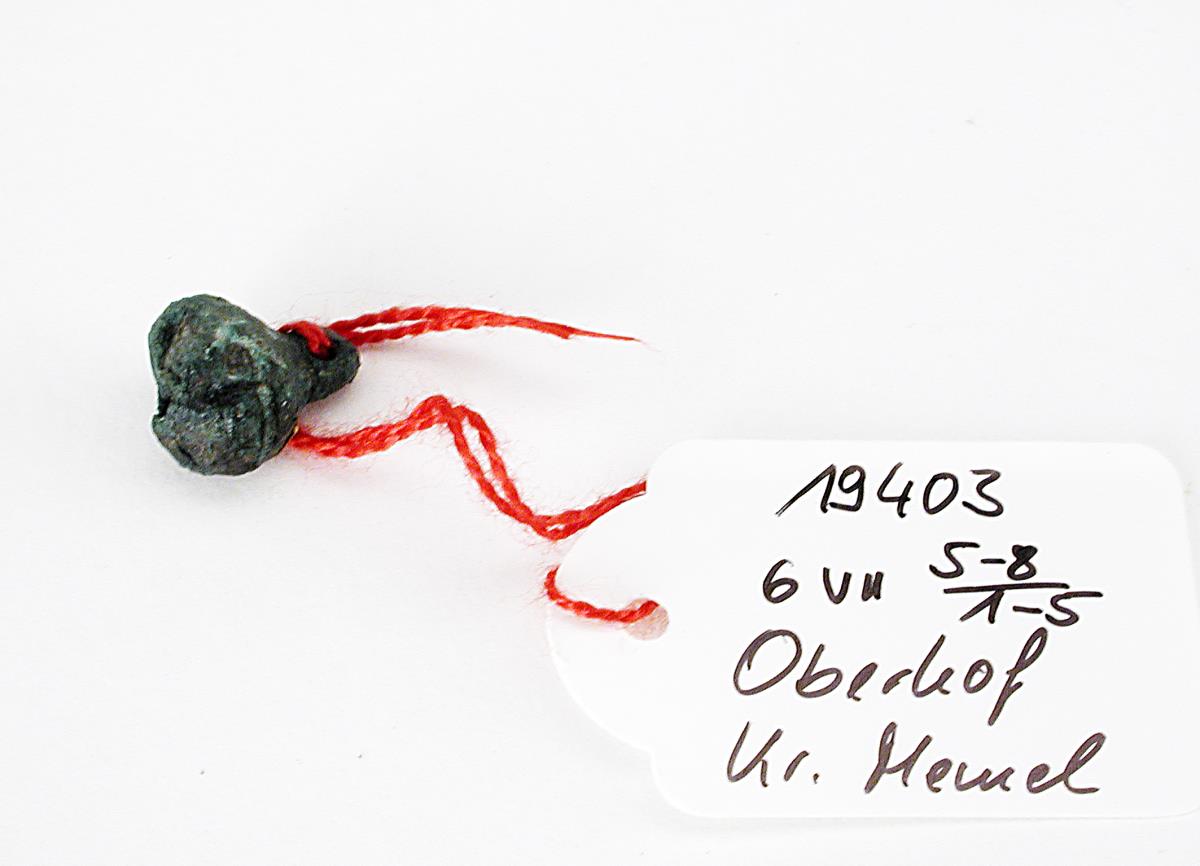 19403
6 VII 5-8
1-5
Oberhof
Kr. Memel